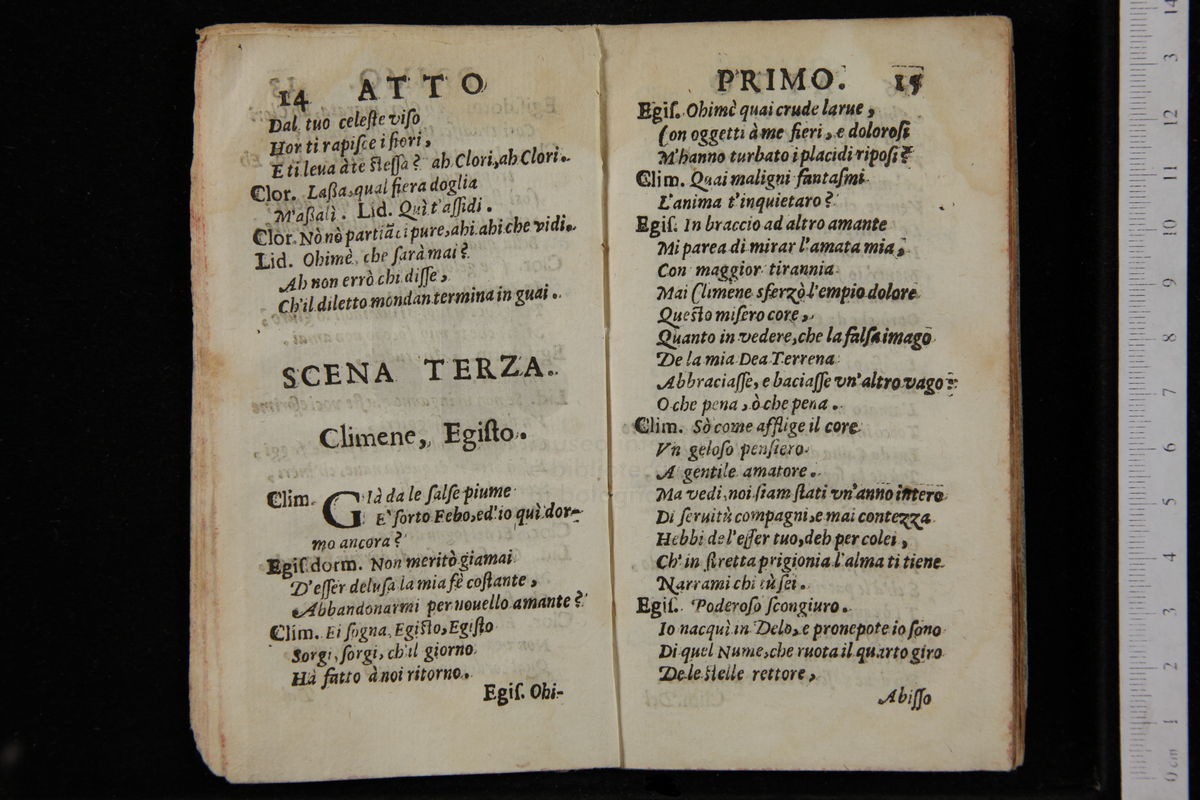 14 ATTO
Dal tuo celeste viso
Hor ti rapisce i fiori,
E ti leua à te stessa? ah Clori, ah Clori.
Clor. Laßa, qual fiera doglia
M'aßalì. Lid. Quì t'assidi.
Clor. Nò nò partiāci pure, ahi ahi che vidi.
Lid. Ohimè, che sarà mai?
Ah non errò chi disse,
Ch'il diletto mondan termina in guai.
SCENA TERZA.
Climene, Egisto.
Clim. Già da le salse piume
E' sorto Febo, ed'io quì dor-
mo ancora?
Egis. dorm. Non meritò giamai
D'esser delusa la mia fè costante,
Abbandonarmi per nouello amante?
Clim. Ei sogna, Egisto, Egisto
Sorgi, sorgi, ch'il giorno
Hà fatto à noi ritorno.
Egis. Ohi-
PRIMO. 15
Egis. Ohimè quai crude larue,
Con oggetti à me fieri, e dolorosi
M'hanno turbato i placidi riposi?
Clim. Quai maligni fantasmi
L'anima t'inquietaro?
Egis. In braccio ad altro amante
Mi parea di mirar l'amata mia,
Con maggior tirannia
Mai Climene sferzò l'empio dolore
Questo misero core,
Quanto in vedere, che la falsa imago
De la mia Dea Terrena
Abbraciasse, e baciasse vn'altro vago?
O che pena, ò che pena.
Clim. Sò come afflige il core
Vn geloso pensiero
A gentile amatore.
Ma vedi, noi siam stati vn'anno intero
Di seruitù compagni, e mai contezza
Hebbi de l'esser tuo, deh per colei,
Ch'in stretta prigionia l'alma ti tiene
Narrami chi tù sei.
Egis. Poderoso scongiuro.
Io nacquì in Delo, e pronepote io sono
Di quel Nume, che ruota il quarto giro
De le stelle rettore,
Abisso